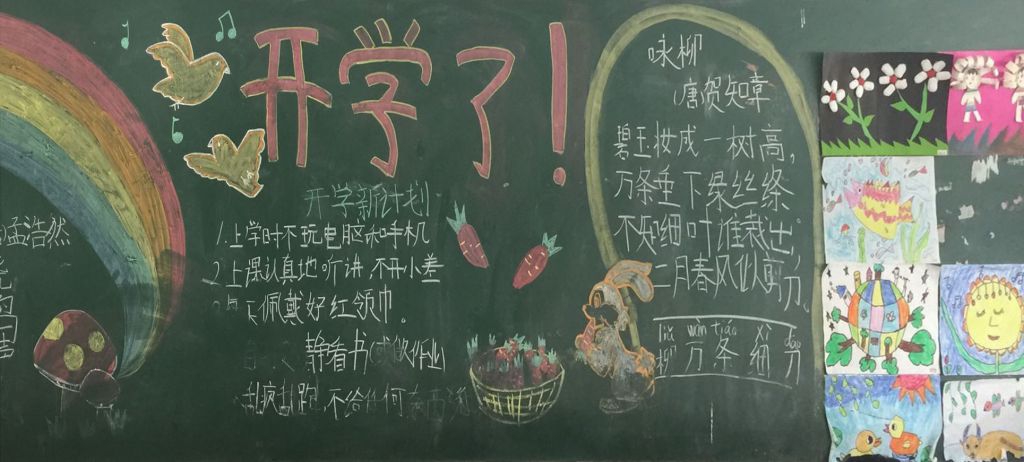 开学了！
孟浩然
开学新计划
1.上学时不玩电脑和手机
2.上课认真地听讲，不开小差
佩戴好红领巾。
静看书(或做作业)
不给任何
咏柳
唐贺知章
碧玉妆成一树高，
万条垂下绿丝绦
不知细叶谁裁出，
二月春风似剪刀
liǔ wàn tiáo xì dāo
柳 万 条 细 刀